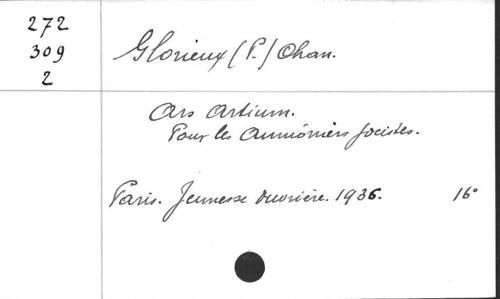 272
309
2
Glorieux (P.) Chan.
Ars Artium.
Pour les Aumôniers Jocistes.
Paris. Jeunesse Ouvrière. 1936. 16°